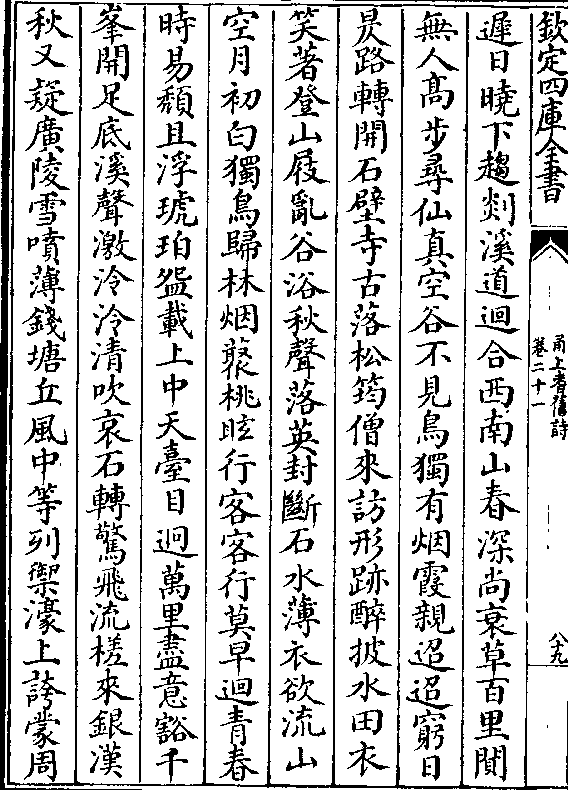 欽定四庫全書
甬上耆舊詩
卷二十一
八九
遲日曉下趨剡溪道迴合西南山春深尚衰草百里閴
無人髙步尋仙真空谷不見鳥獨有烟霞親迢迢窮日
昃路轉開石壁寺古落松筠僧來訪形跡醉披水田衣
笑著登山屐亂谷浴秋聲落英封斷石水薄衣欲流山
空月初白獨鳥歸林烟藂桃眩行客客行莫早迴青春
時易頽且浮琥珀盌載上中天臺目迥萬里盡意豁千
峯開足底溪聲激泠泠清吹哀石轉驚飛流槎來銀漢
秋又疑廣陵雪噴薄錢塘丘風中等列禦濠上誇蒙周